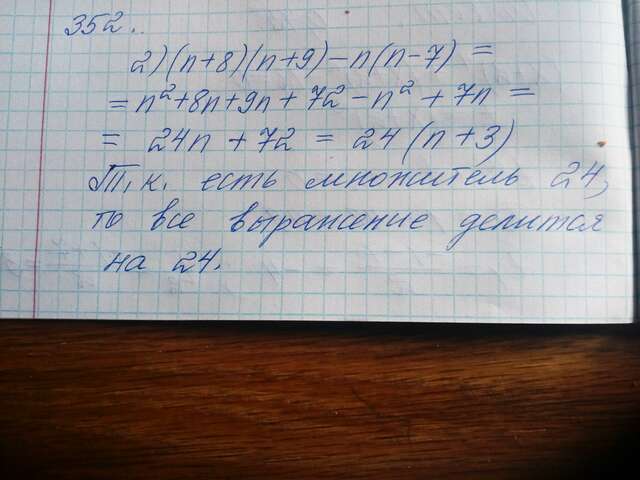 352.
2) (n+8)(n+9) - n(n-7) =
= n²+8n+9n+72-n²+7n =
= 24n + 72 = 24(n+3)
Т.к. есть множитель 24,
то все выражение делится
на 24.